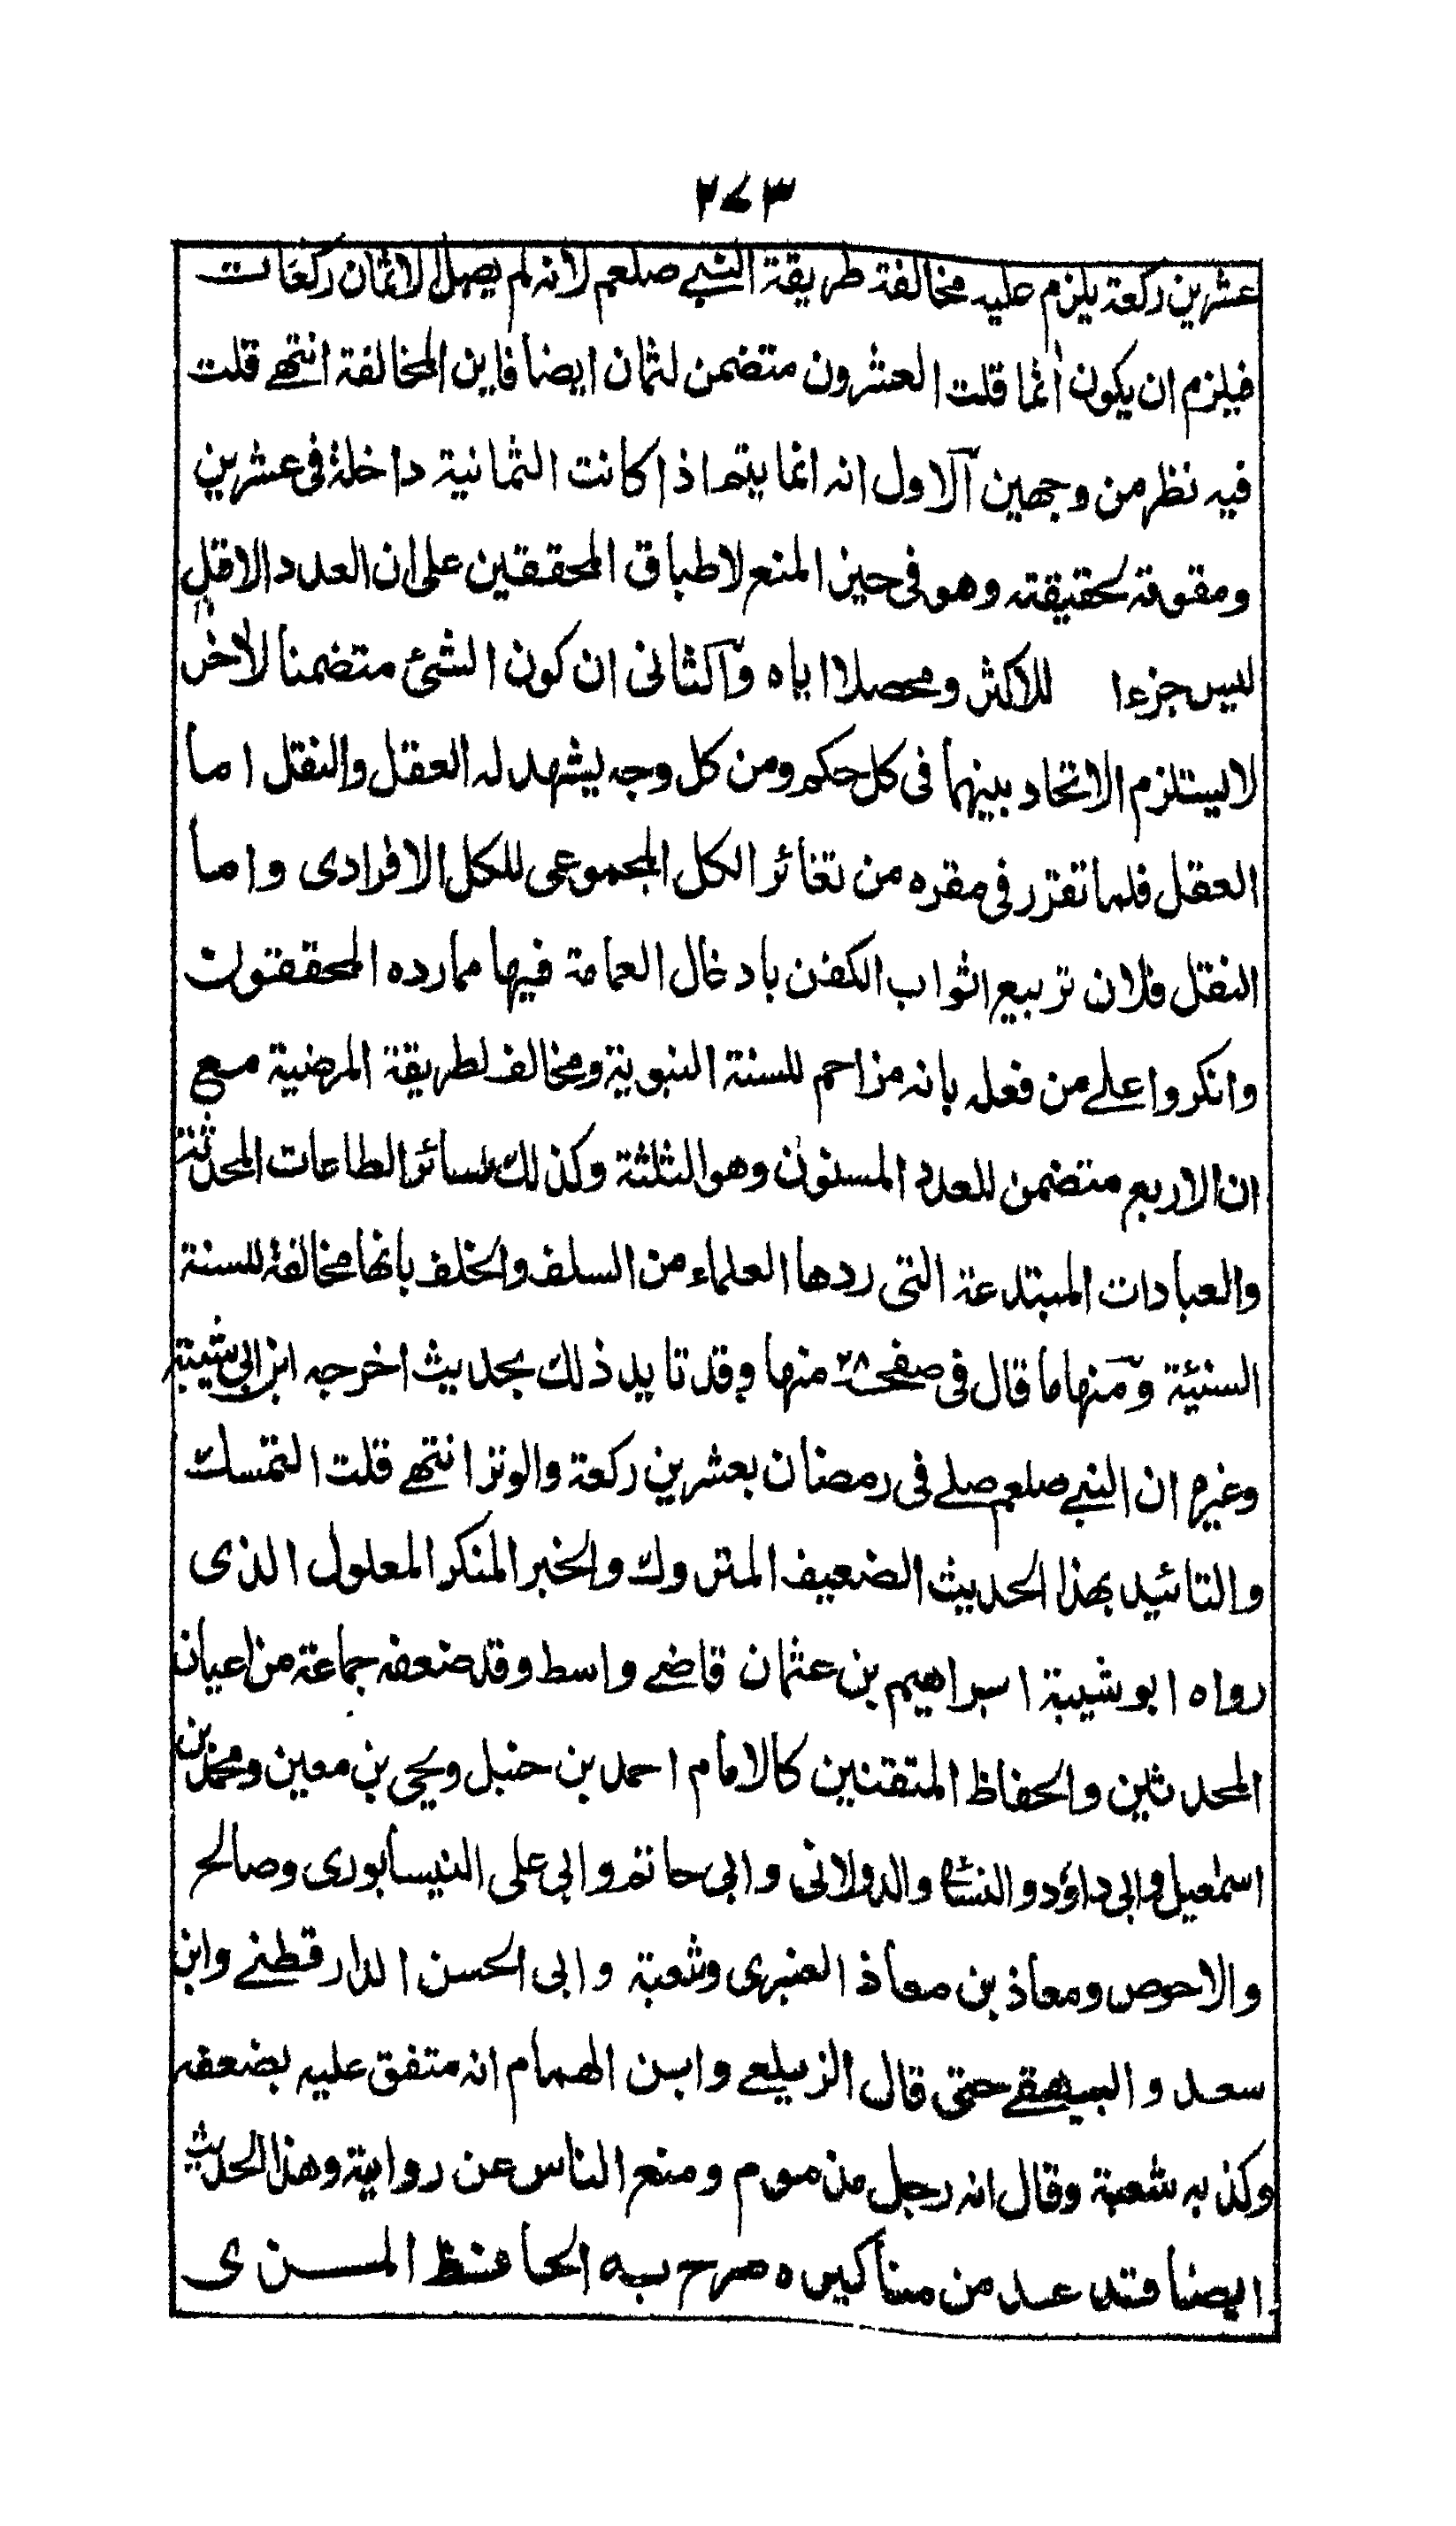 ٢٧٣
عشرين ركعة يلزم عليه مخالفة طريقة النبي صلعم لانه لم يصل الا ثمان ركعات
فيلزم ان يكون اثما قلت العشرون متضمن لثمان ايضا فاين المخالفة انتهى قلت
فيه نظر من وجهين الاول انه انما يتم اذا كانت الثمانية داخلة في عشرين
ومقومة لحقيقته وهو في حيز المنع لاطباق المحققين على ان العدد الاقل
ليس جزءا للاكثر ومحصلا اياه والثاني ان كون الشئ متضمنا لآخر
لا يستلزم الاتحاد بينهما في كل حكم ومن كل وجه يشهد له العقل والنقل اما
العقل فلما تقرر في مقره من تغائر الكل المجموعي للكل الافرادى واما
النقل فلان تربيع اثواب الكفن بادخال العمامة فيها مما رده المحققون
وانكروا على من فعله بانه مزاحم للسنة النبوية ومخالف لطريقة المرضية مع
ان الاربع متضمن للعدد المسنون وهو الثلثة وكذلك سائر الطاعات المحدثة
والعبادات المبتدعة التى ردها العلماء من السلف والخلف بانها مخالفة للسنة
السنية ومنها ما قال في صفحه ٢٨ منها وقد تايد ذلك بحديث اخرجه ابن ابى شيبة
وغيره ان النبي صلعم صلى في رمضان بعشرين ركعة والوتر انتهى قلت التمسك
والتائيد بهذا الحديث الضعيف المتروك والخبر المنكر المعلول الذى
رواه ابو شيبة ابراهيم بن عثمان قاضى واسط وقد ضعفه جماعة من اعيان
المحدثين والحفاظ المتقنين كالامام احمد بن حنبل ويحيى بن معين ومحمد بن
اسمعيل وابى داؤد والنسائى والدولابى وابى حاتم وابى على النيسابورى وصالح
والاحوص ومعاذ بن معاذ العنبرى وشعبة وابى الحسن الدارقطنى وابن
سعد والبيهقى حتى قال الزيلعى وابن الهمام انه متفق عليه بضعفه
وكذبه شعبة وقال انه رجل مذموم ومنع الناس عن روايته وهذا الحديث
ايضا قد عد من مناكيره صرح به الحافظ المزى